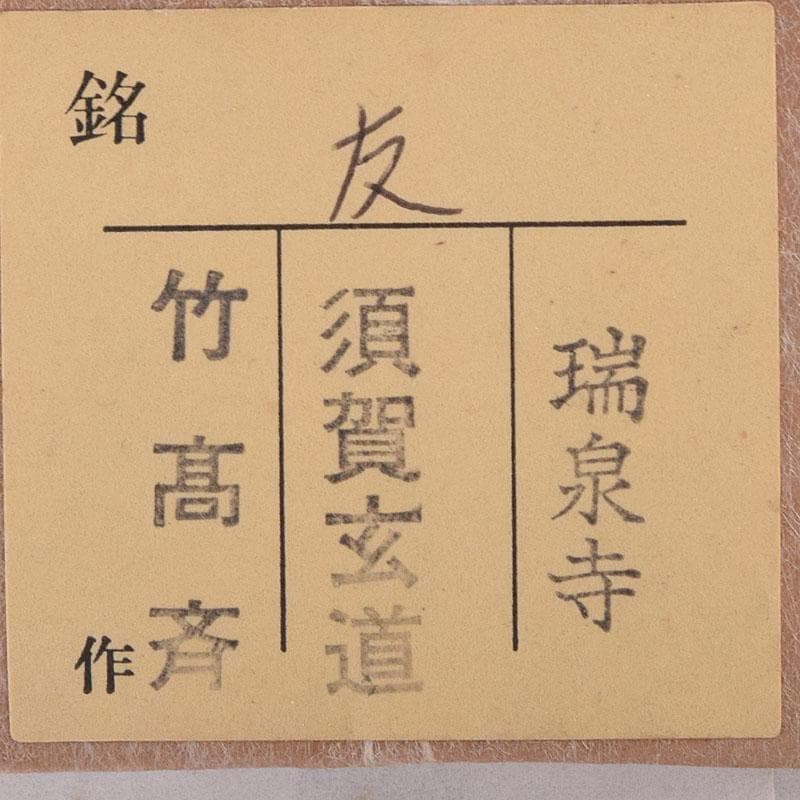 銘
友
瑞泉寺
須賀玄道
竹髙斉
作